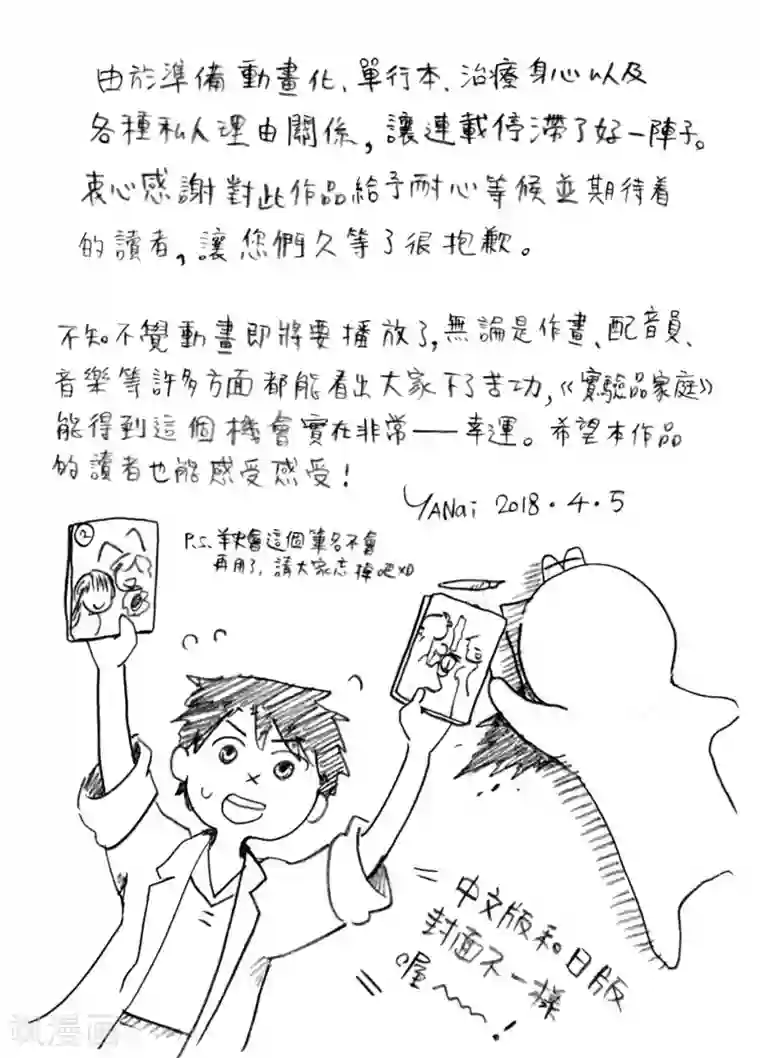 由於準備動畫化、單行本、治療身心以及
各種私人理由關係，讓連載停滯了好一陣子。
衷心感謝對此作品給予耐心等候並期待着
的讀者，讓您們久等了很抱歉。
不知不覺動畫即將要播放了，無論是作畫、配音員、
音樂等許多方面都能看出大家下了苦功，《實驗品家庭》
能得到這個機會實在非常——幸運。希望本作品
的讀者也能感受感受！
YANai 2018.4.5
P.S. 羊央會這個筆名不會
再用了，請大家忘掉吧XD
2
中文版和日版
封面不一樣
喔～～！
飒漫画